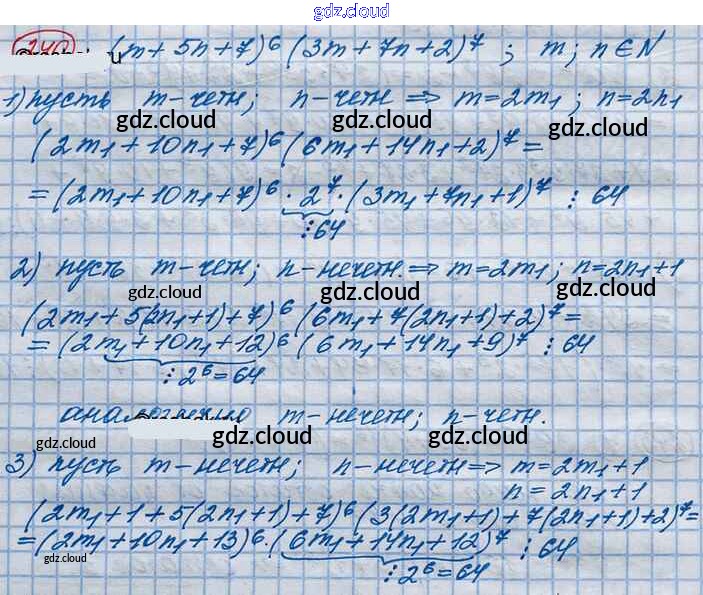 gdz.cloud
240 (m + 5n + 7)⁶ (3m + 7n + 2)⁷ ; m; n ∈ N
1) пусть m - четн; n - четн ⇒ m = 2m₁ ; n = 2n₁
gdz.cloud gdz.cloud gdz.cloud
(2m₁ + 10n₁ + 7)⁶ (6m₁ + 14n₁ + 2)⁷ =
= (2m₁ + 10n₁ + 7)⁶ · 2⁷ · (3m₁ + 7n₁ + 1)⁷ ⋮ 64
⋮ 64
gdz.cloud gdz.cloud
2) пусть m - четн; n - нечетн. ⇒ m = 2m₁; n = 2n₁ + 1
gdz.cloud gdz.cloud gdz.cloud
(2m₁ + 5(2n₁ + 1) + 7)⁶ (6m₁ + 7(2n₁ + 1) + 2)⁷ =
= (2m₁ + 10n₁ + 12)⁶ (6m₁ + 14n₁ + 9)⁷ ⋮ 64
⋮ 2⁶ = 64
аналогично m - нечетн; n - четн.
gdz.cloud gdz.cloud gdz.cloud
3) пусть m - нечетн; n - нечетн ⇒ m = 2m₁ + 1
n = 2n₁ + 1
(2m₁ + 1 + 5(2n₁ + 1) + 7)⁶ (3(2m₁ + 1) + 7(2n₁ + 1) + 2)⁷ =
= (2m₁ + 10n₁ + 13)⁶ · (6m₁ + 14n₁ + 12)⁷ ⋮ 64
gdz.cloud
⋮ 2⁶ = 64
gdz.cloud